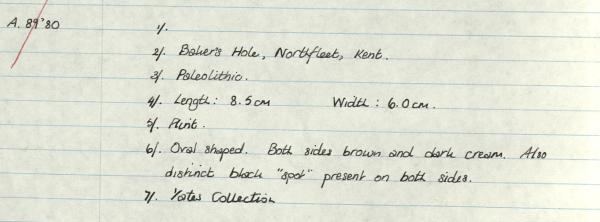 A. 89'80
1/.
2/. Baker's Hole, Northfleet, Kent.
3/. Paleolithic.
4/. Length: 8.5cm Width: 6.0cm.
5/. Flint.
6/. Oval shaped. Both sides brown and dark cream. Also
distinct black "spot" present on both sides.
7/. Yates Collection